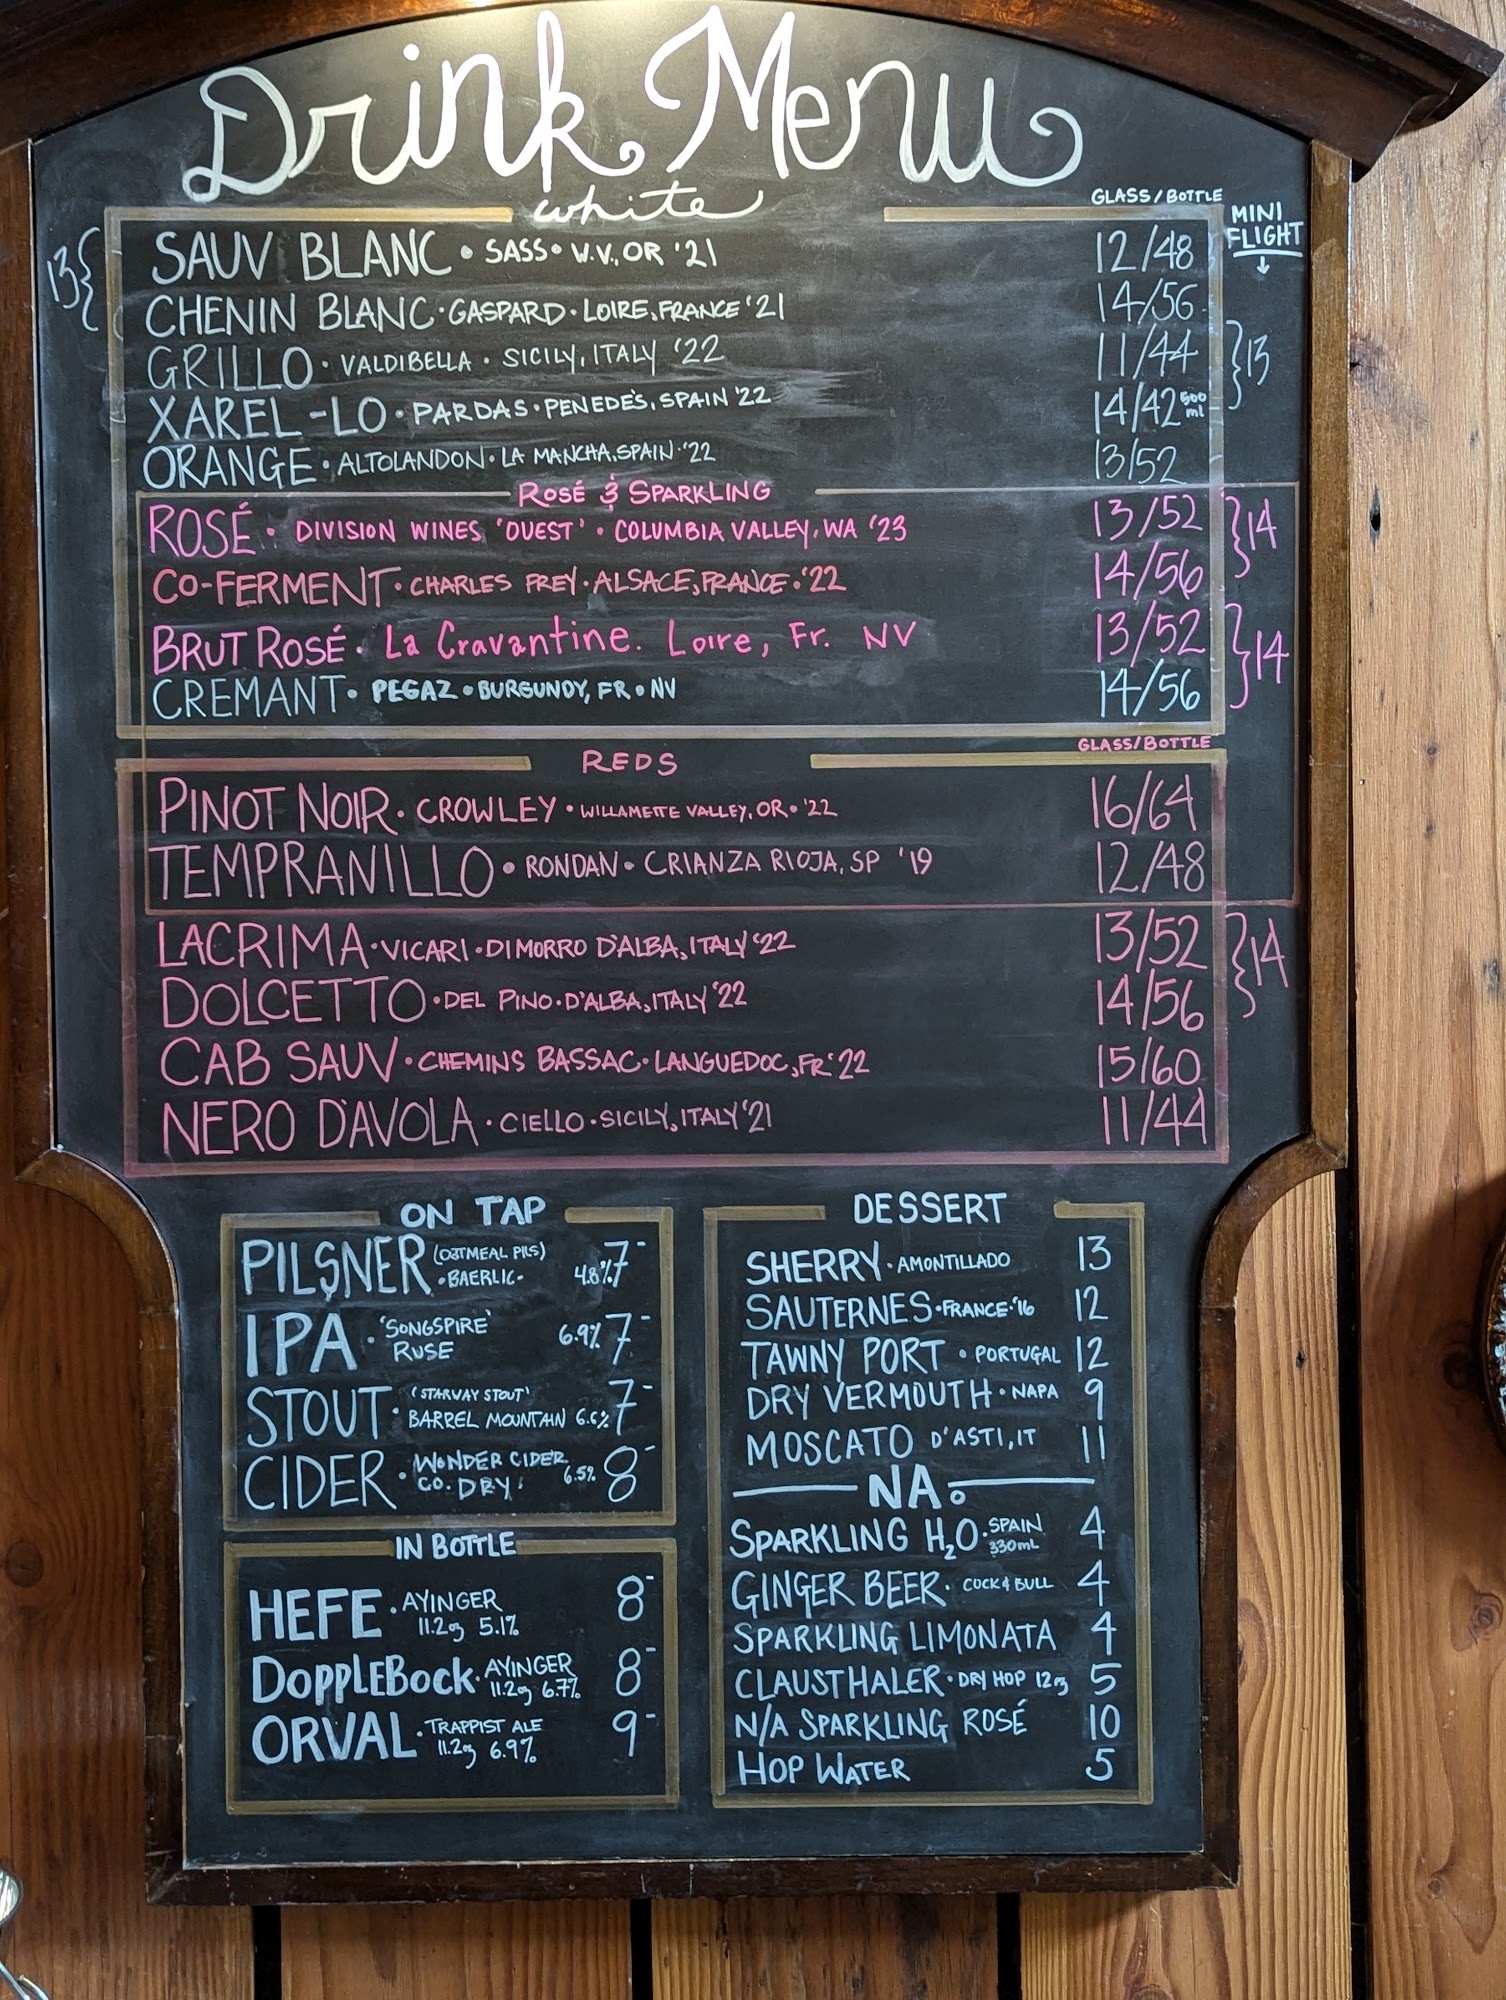 Drink Menu
white
GLASS/BOTTLE
MINI
FLIGHT
↓
13{
SAUV BLANC • SASS • W.V., OR '21 12/48
CHENIN BLANC · GASPARD · LOIRE, FRANCE '21 14/56
GRILLO · VALDIBELLA · SICILY, ITALY '22 11/44 }13
XAREL-LO · PARDAS · PENEDÈS, SPAIN '22 14/42 500 ml
ORANGE · ALTOLANDON · LA MANCHA, SPAIN · '22 13/52
ROSÉ & SPARKLING
ROSÉ · DIVISION WINES 'OUEST' · COLUMBIA VALLEY, WA '23 13/52 }14
CO-FERMENT · CHARLES FREY · ALSACE, FRANCE · '22 14/56
BRUT ROSÉ · La Cravantine. Loire, Fr. NV 13/52 }14
CREMANT • PEGAZ • BURGUNDY, FR • NV 14/56
GLASS/BOTTLE
REDS
PINOT NOIR · CROWLEY • WILLAMETTE VALLEY, OR • '22 16/64
TEMPRANILLO • RONDAN • CRIANZA RIOJA, SP '19 12/48
LACRIMA · VICARI · DI MORRO D'ALBA, ITALY '22 13/52 }14
DOLCETTO · DEL PINO · D'ALBA, ITALY '22 14/56
CAB SAUV · CHEMINS BASSAC · LANGUEDOC, FR '22 15/60
NERO D'AVOLA · CIELLO · SICILY, ITALY '21 11/44
ON TAP
PILSNER (OATMEAL PILS) · BAERLIC · 4.8% 7-
IPA · 'SONGSPIRE' RUSE 6.9% 7-
STOUT · ('STARWAY STOUT' BARREL MOUNTAIN 6.6% 7-
CIDER · WONDER CIDER CO. DRY 6.5% 8-
IN BOTTLE
HEFE · AYINGER 11.2oz 5.1% 8-
DOPPLEBOCK · AYINGER 11.2oz 6.7% 8-
ORVAL · TRAPPIST ALE 11.2oz 6.9% 9-
DESSERT
SHERRY · AMONTILLADO 13
SAUTERNES · FRANCE · '16 12
TAWNY PORT • PORTUGAL 12
DRY VERMOUTH · NAPA 9
MOSCATO D'ASTI, IT 11
NA.
SPARKLING H2O · SPAIN 330mL 4
GINGER BEER · COCK & BULL 4
SPARKLING LIMONATA 4
CLAUSTHALER · DRY HOP 12oz 5
N/A SPARKLING ROSÉ 10
HOP WATER 5